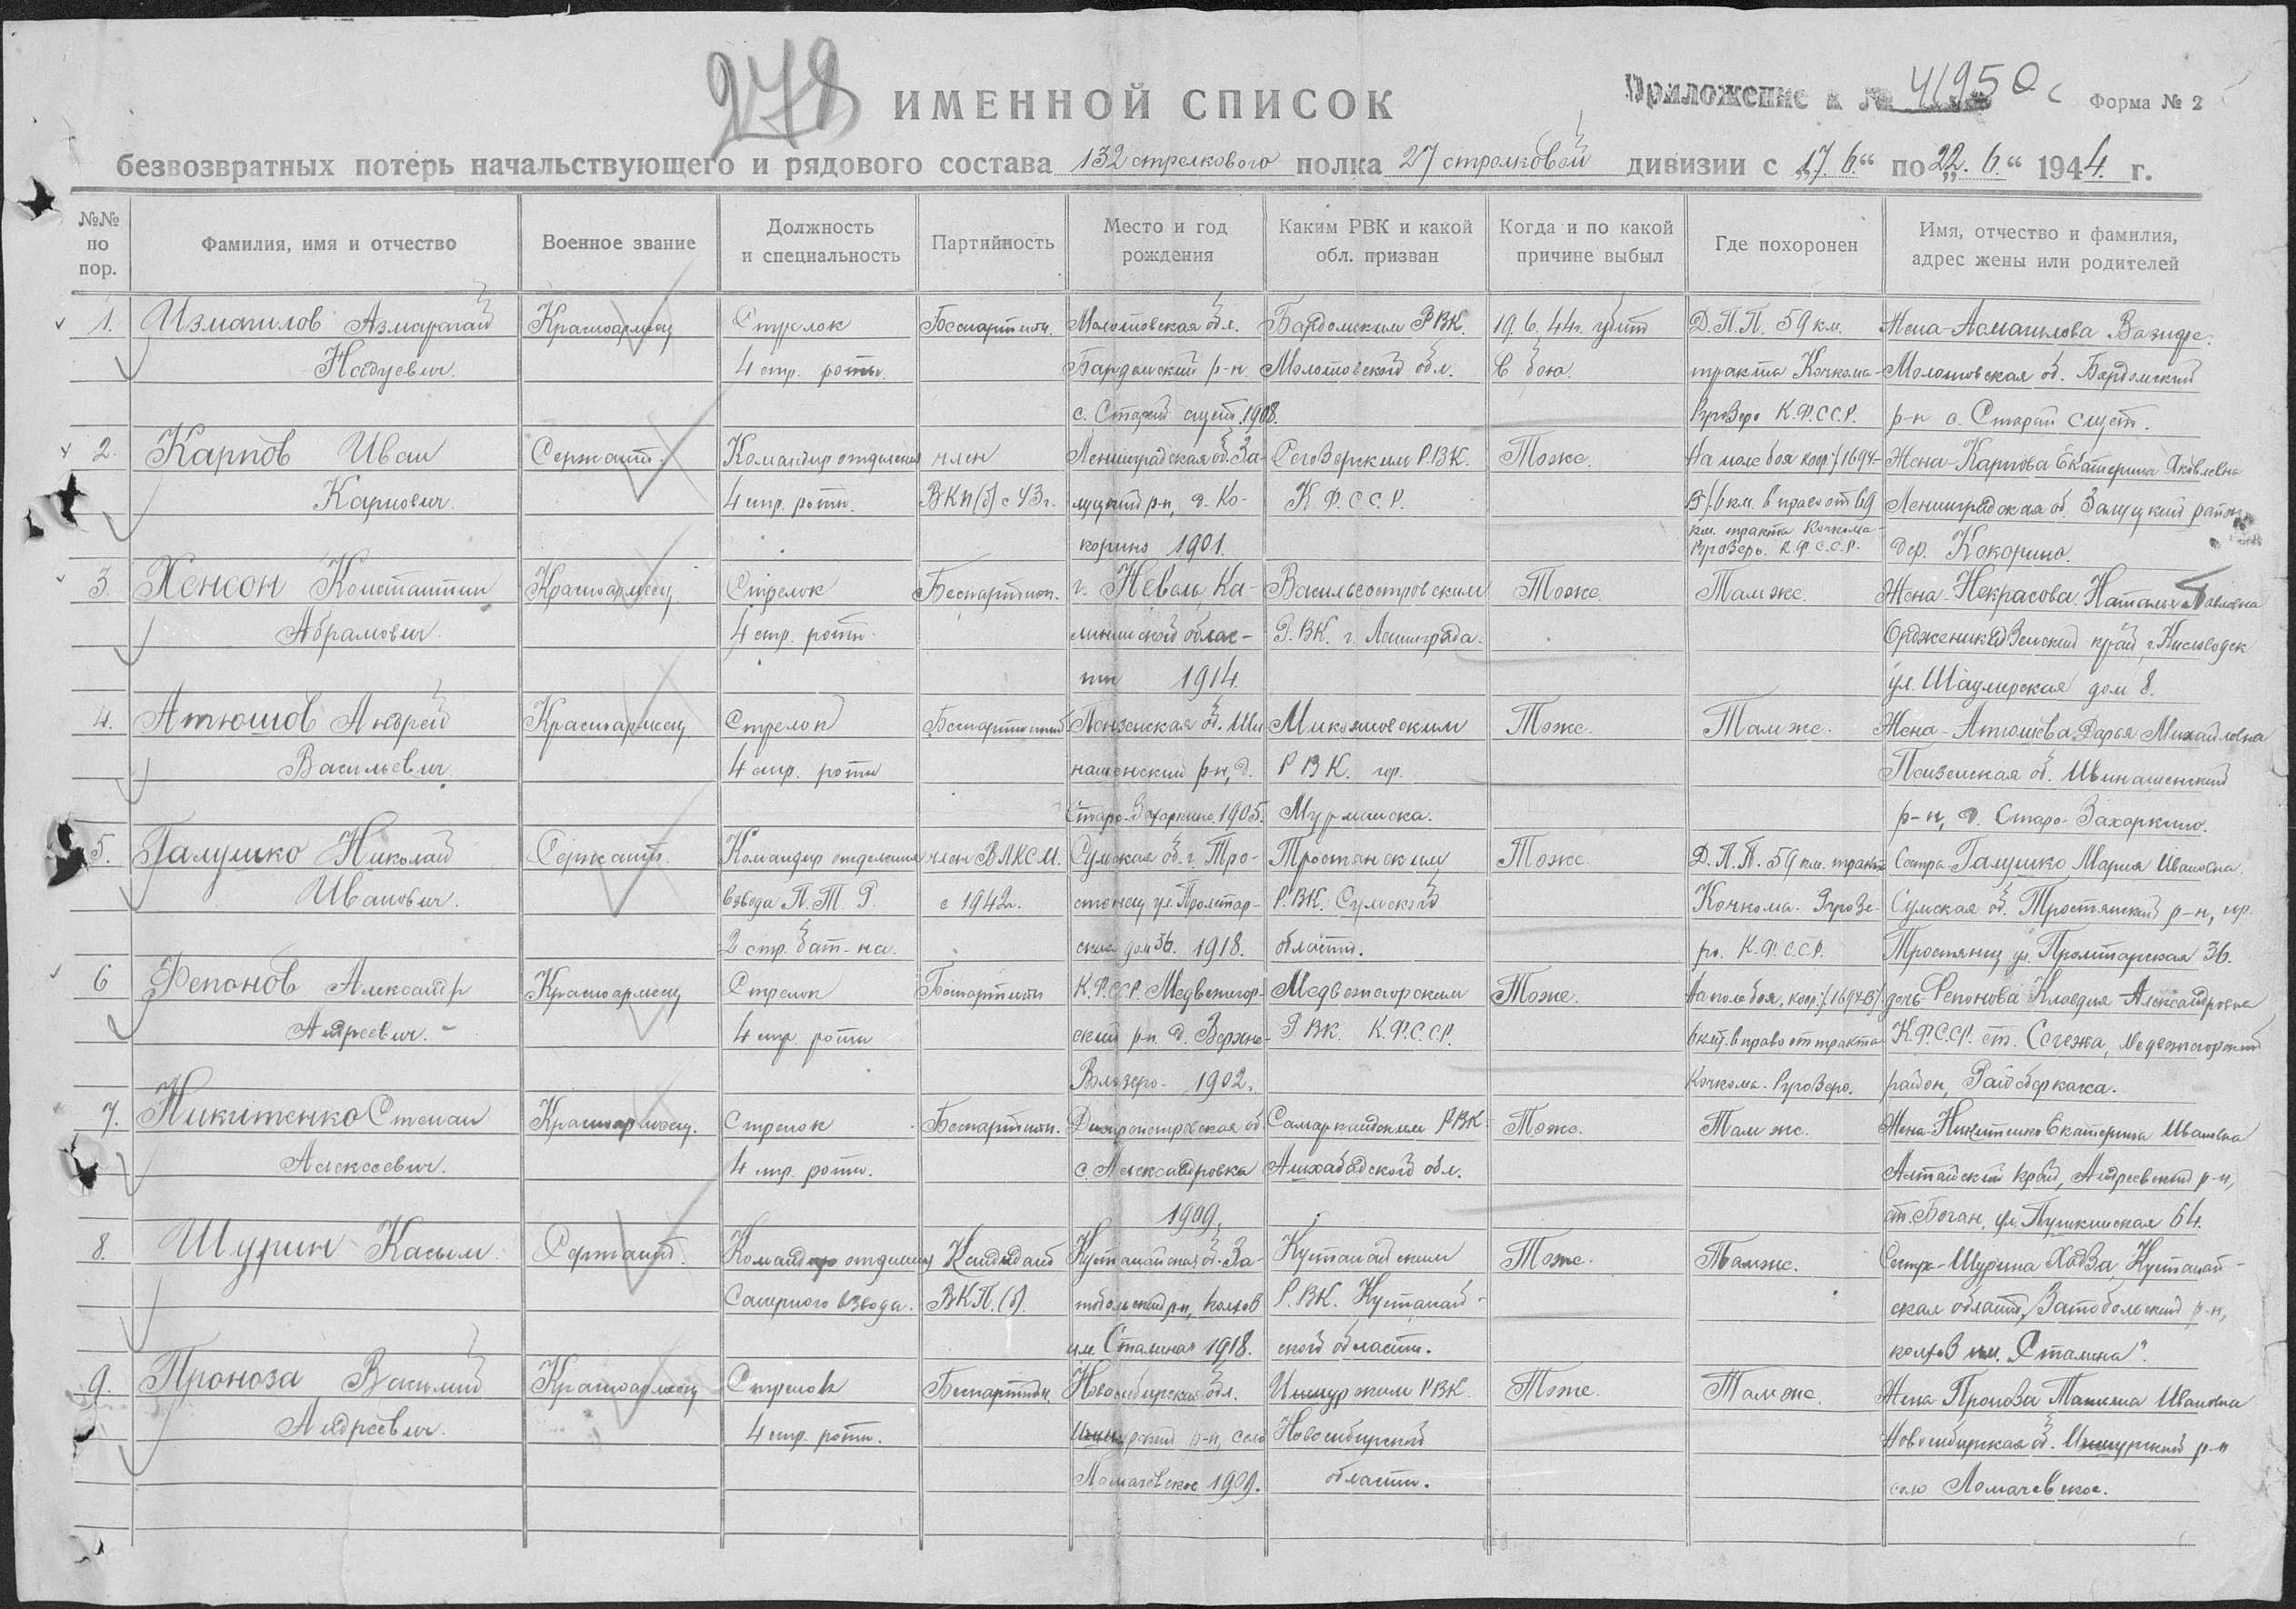 278
ИМЕННОЙ СПИСОК
Приложение к № 41950с
Форма № 2
безвозвратных потерь начальствующего и рядового состава 132 стрелкового полка 27 стрелковой дивизии с „17.6.“ по „22.6.“ 1944 г.
№№ по пор.
Фамилия, имя и отчество
Военное звание
Должность и специальность
Партийность
Место и год рождения
Каким РВК и какой обл. призван
Когда и по какой причине выбыл
Где похоронен
Имя, отчество и фамилия, адрес жены или родителей
1. Измагилов Красноармеец Стрелок Беспартийн. Молотовская обл. Бардымским РВК. 19.6.44г. убит Д.П.П. 59 км. Жена-
4 стр. роты. Бардымский р-н Молотовской обл. в бою. тракта Кочкома- Молотовская об. Бардымский
с. Старый 1908. Ругозеро К.Ф.ССР. р-н с. Старый
2. Карпов Иван Сержант. Командир отделения член Ленинградская об. За- Сегозерским Р.ВК. Тоже. На поле боя коор./1694- Жена-Карпова Екатерина Яковлевна
Карпович. 4 стр. роты. ВКП(б) с 43г. р-н, д. Ко- К.Ф.С.С.Р. В/6 км. вправо от 69 Ленинградская об. район
корино 1901. км. тракта Кочкома- Ругозеро. К.Ф.С.С.Р. дер. Кокорино.
3. Хенсон Константин Красноармеец Стрелок Беспартийн. г. Невель, Ка- Васильеостровским Тоже. Там же. Жена-Некрасова Наталья Павловна
Абрамович. 4 стр. роты. лининской облас- Р.ВК. г. Ленинграда. Орджоникидзенский край, г. Кисловодск
ти 1914. ул. Шаумирская дом 8.
4. Атюшов Андрей Красноармеец Стрелок Беспартийный Пензенская об. Микояновским Тоже. Там же. Жена-Атюшева Дарья Михайловна
Васильевич. 4 стр. роты р-н, д. РВК. гор. Пензенская об.
Старо-Захаркино, 1905. Мурманска. р-н, д. Старо-Захаркино.
5. Галушко Николай Сержант. Командир отделения член ВЛКСМ. Сумская об. г. Тро- Тростянским Тоже. Д.П.П. 59 км. тракта Сестра-Галушко Мария Ивановна.
Иванович. взвода П.Т.Р. с 1942г. стянец ул. Пролетар- Р.ВК. Сумской Кочкома-Ругозе- Сумская об. Тростянский р-н, гор.
2 стр. бат-на. ская дом 36. 1918. области. ро. К.Ф.С.С.Р. Тростянец ул. Пролетарская 36.
6 Фепонов Александр Красноармеец Стрелок Беспартийн К.Ф.ССР. Медвежегор- Медвежегорским Тоже. На поле боя, коор./1694-В/ дочь-Фепонова Клавдия Александровна
Андреевич. 4 стр. роты ский р-н. д. Верхне- Р.ВК. К.Ф.С.С.Р. 6 км. вправо от тракта К.Ф.С.С.Р. ст. Сегежа, Медвежегорский
Волозеро- 1902. Кочкома-Ругозеро. район,
7. Никитенко Степан Красноармеец. Стрелок Беспартийн. Днепропетровская об. Самаркандским РВК. Тоже. Там же. Жена-Никитенко Екатерина Ивановна
Алексеевич. 4 стр. роты. с. Александровка Ашхабадской обл. Алтайский край, Андреевский р-н,
1909. ст. Боган, ул. Пушкинская 64.
8. Шурин Касым. Сержант. Командир отделения Кандидат Кустанайская об. За- Кустанайским Тоже. Там же. Сестра-Шурина Кустанай-
Саперного взвода. ВКП.(б). тобольский р-н, колхоз Р.ВК. Кустанай- ская область, Затобольский р-н,
им. Сталина 1918. ской области. колхоз им. Сталина".
9. Проноза Василий Красноармеец Стрелок Беспартийн. Новосибирская обл. РВК. Тоже. Там же. Жена-Проноза Татьяна Ивановна
Андреевич. 4 стр. роты. р-н, село Новосибирской Новосибирская об. р-н
Ломачевское 1909. области. село Ломачевское.